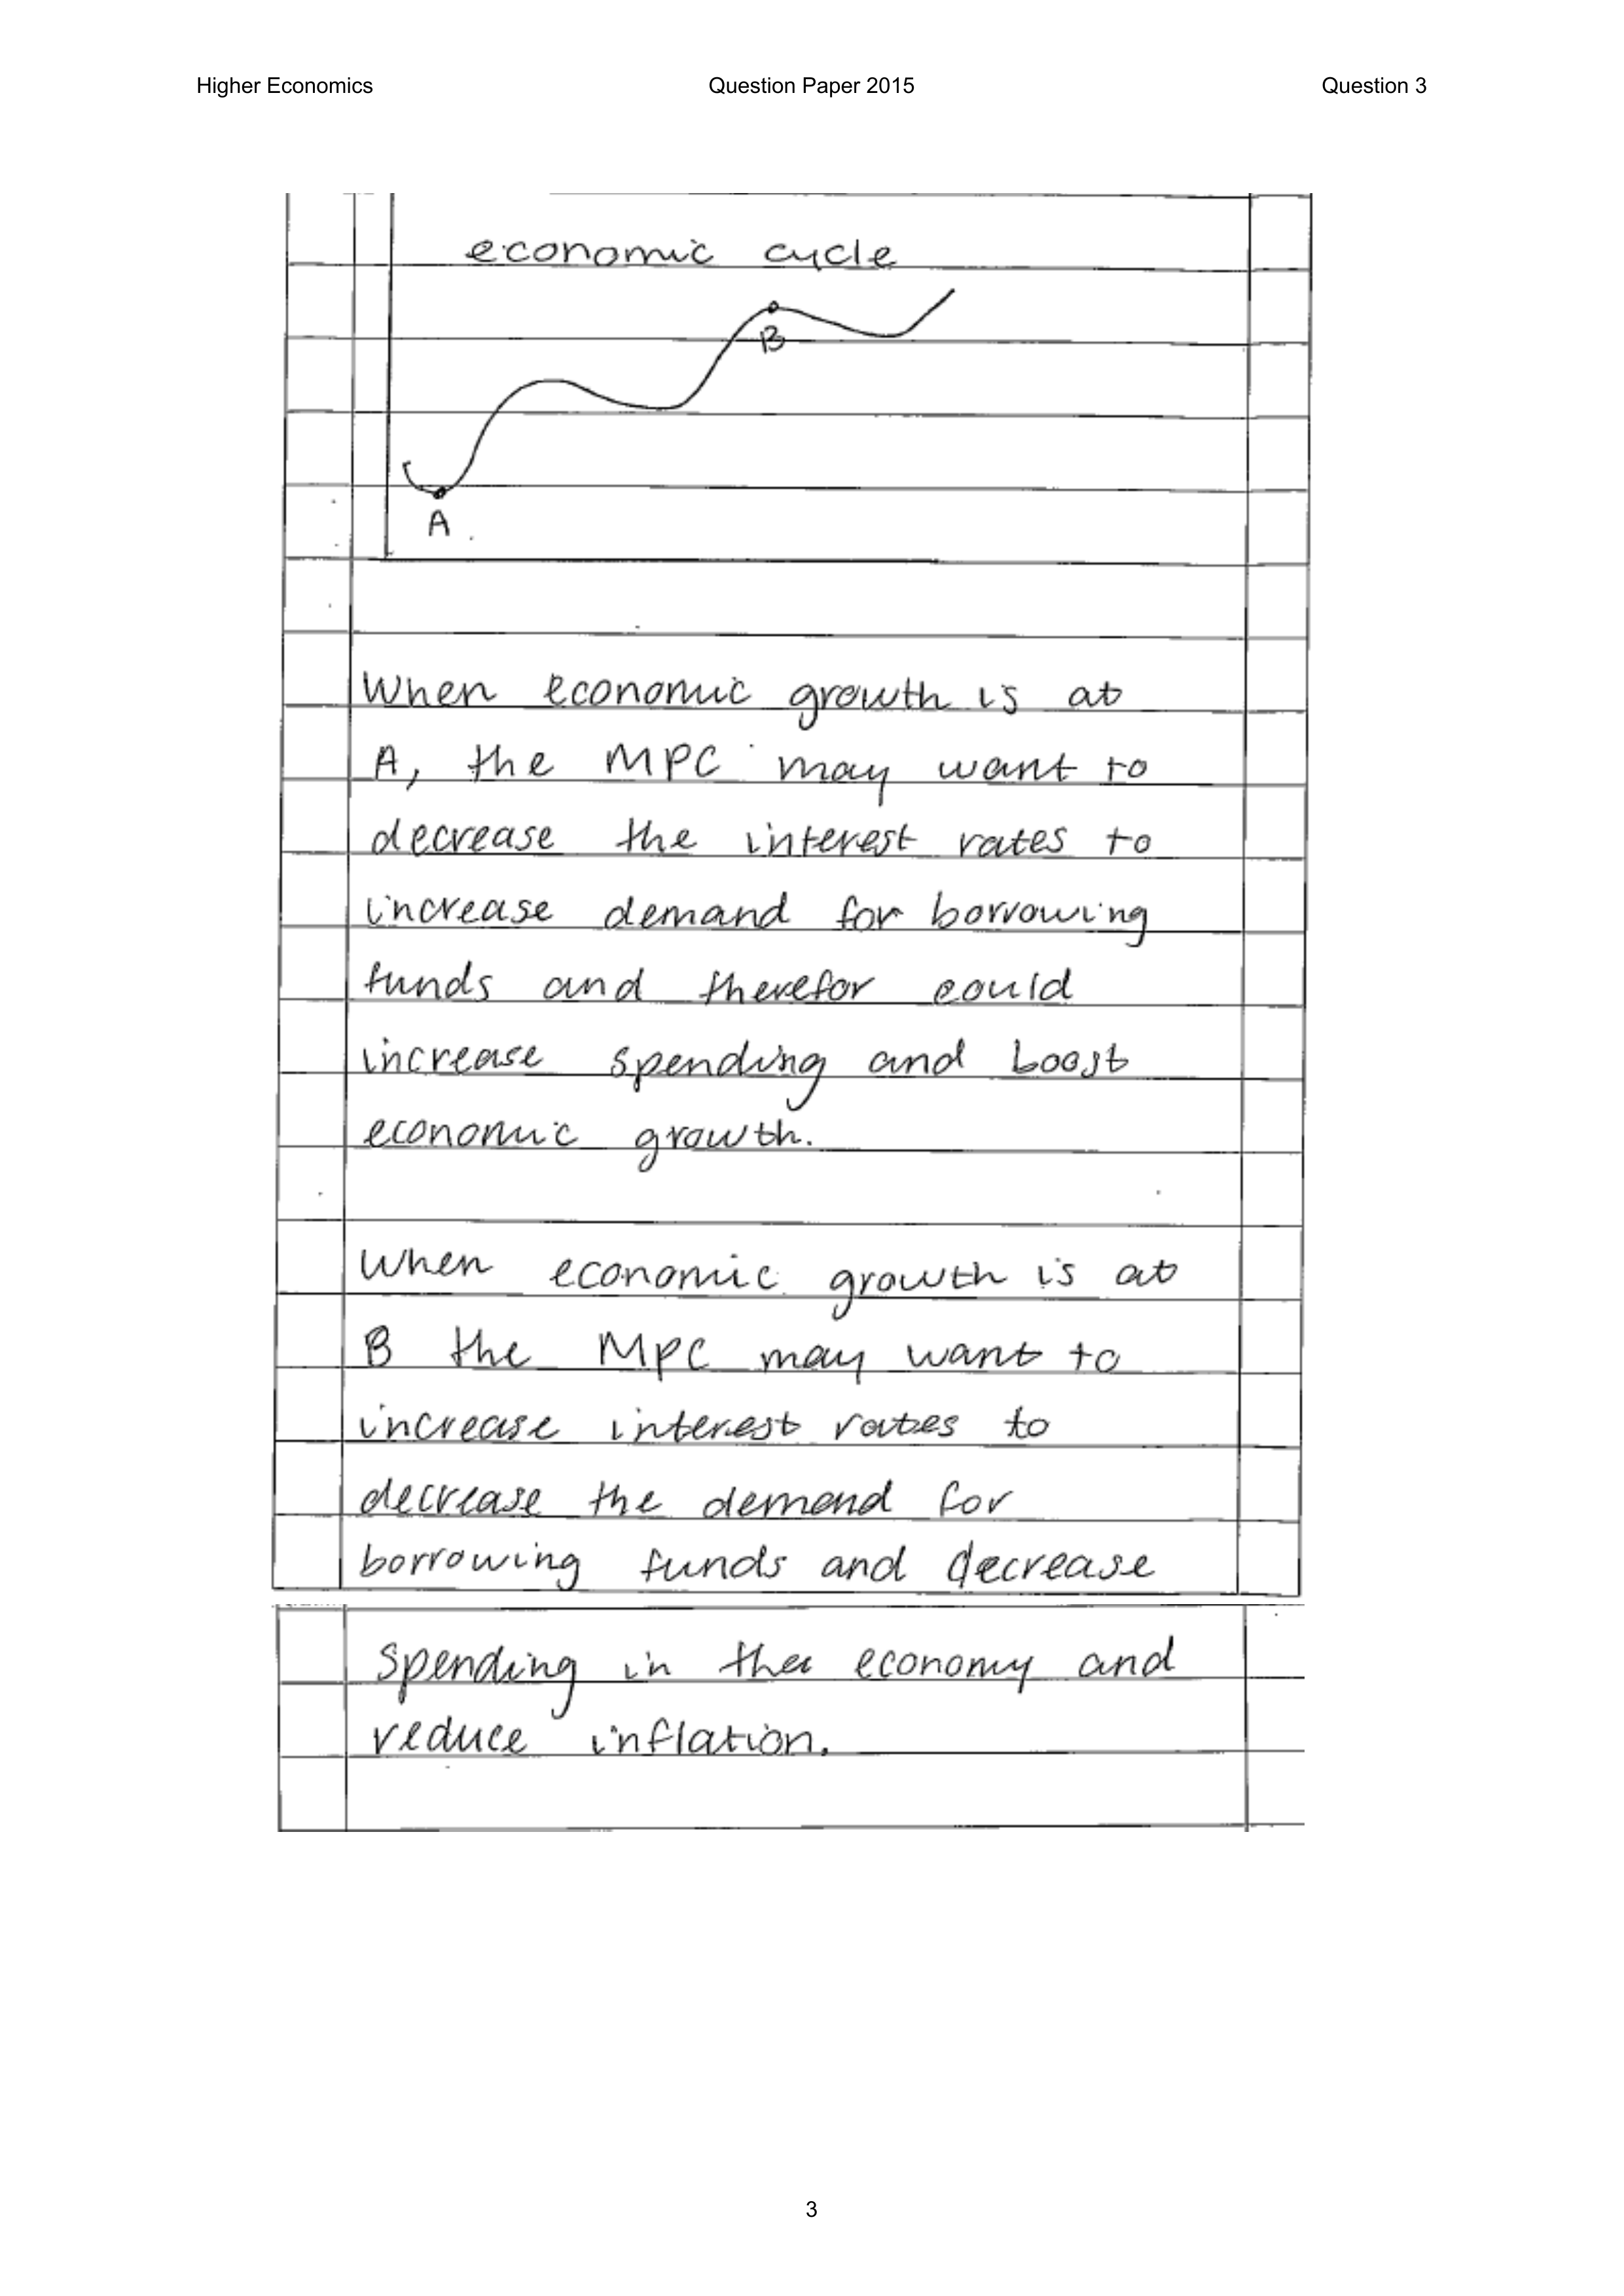 Higher Economics Question Paper 2015 Question 3
economic cycle
B
A
When economic growth is at
A, the MPC may want to
decrease the interest rates to
increase demand for borrowing
funds and therefor could
increase spending and boost
economic growth.
When economic growth is at
B the MPC may want to
increase interest rates to
decrease the demand for
borrowing funds and decrease
spending in the economy and
reduce inflation.
3